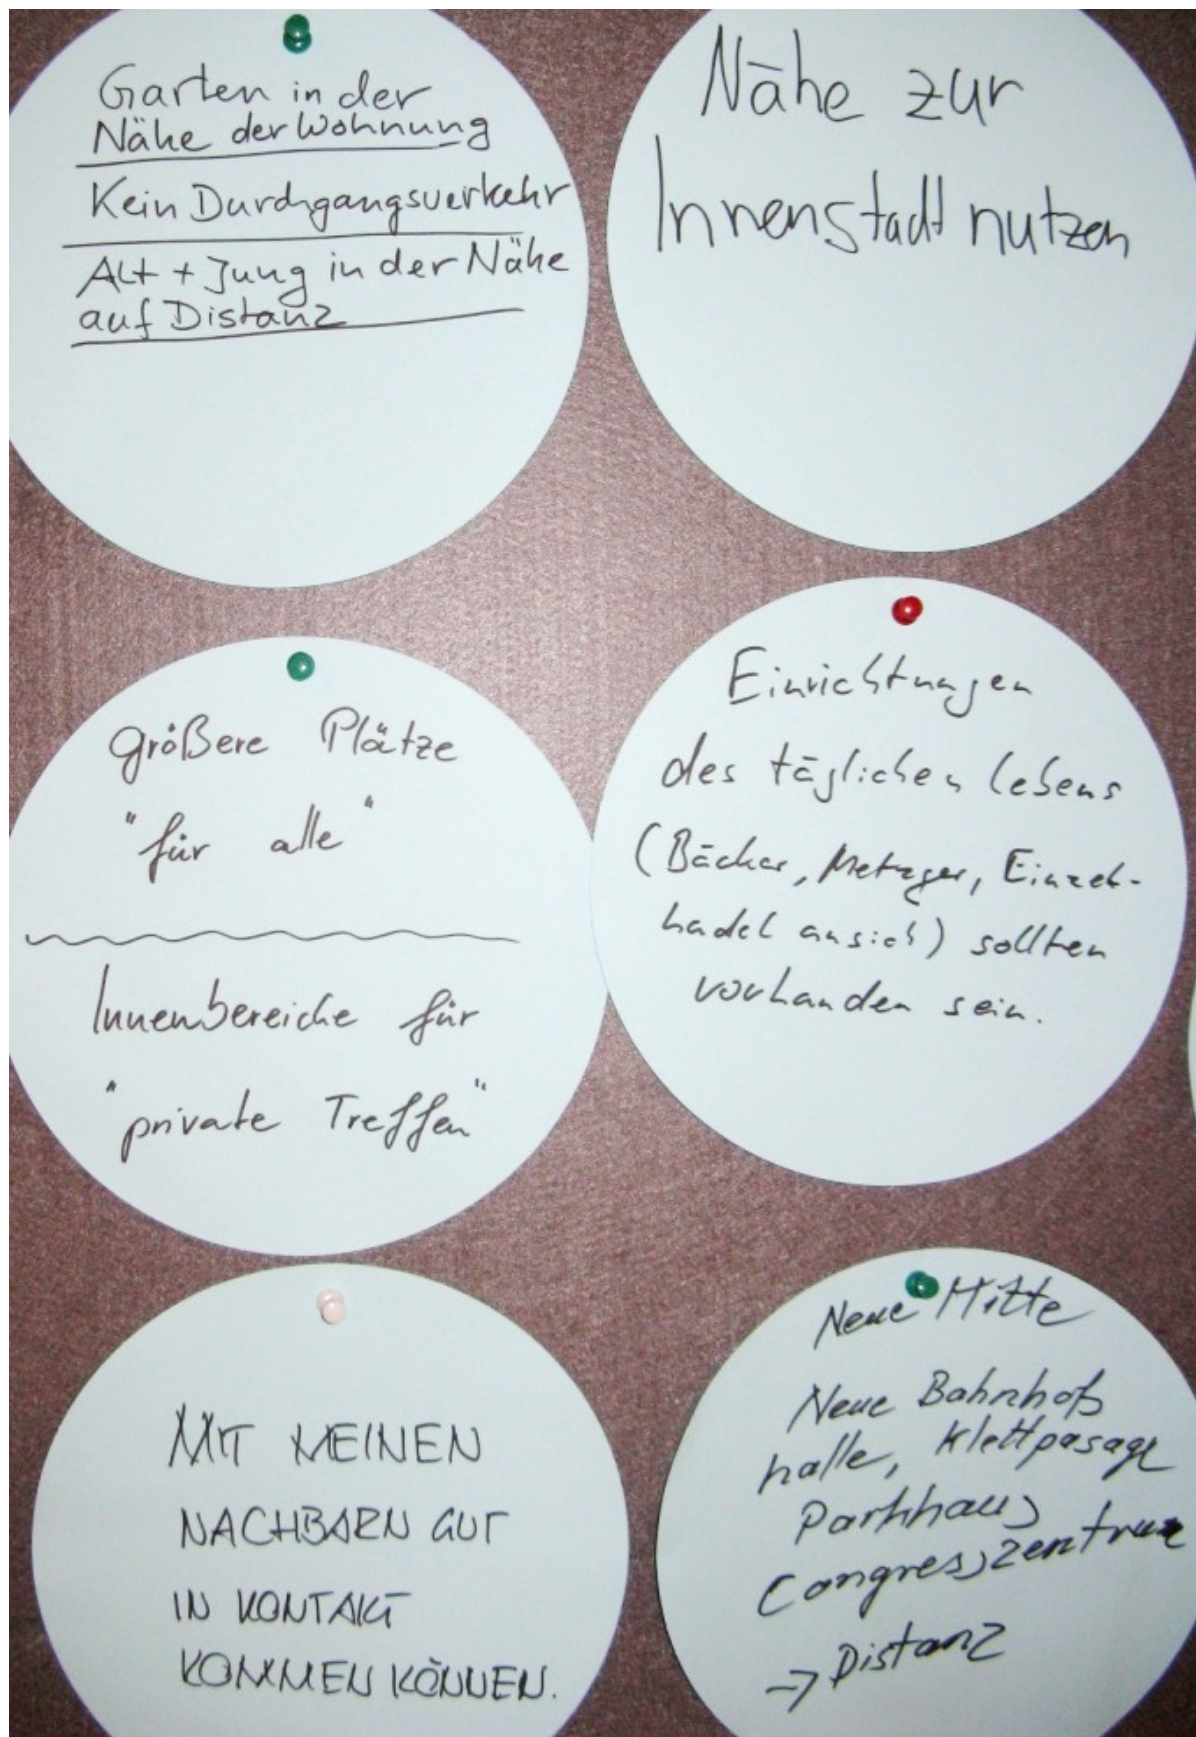 Garten in der
Nähe der Wohnung
Kein Durchgangsverkehr
Alt + Jung in der Nähe
auf Distanz
Nähe zur
Innenstadt nutzen
größere Plätze
"für alle"
Innenbereiche für
"private Treffen"
Einrichtungen
des täglichen Lebens
(Bäcker, Metzger, Einzel-
hadel ansich) sollten
vorhanden sein.
MIT MEINEN
NACHBARN GUT
IN KONTAKT
KOMMEN KÖNNEN.
Neue Mitte
Neue Bahnhofs
halle, Klettpasage
Parkhaus
Congresszentrum
→ Distanz